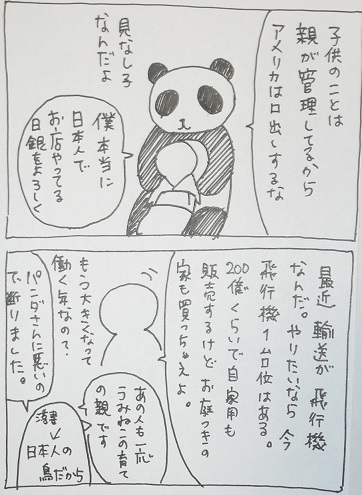 子供のことは
親が管理してるから
アメリカは口出しするな
見なし子
なんだよ
僕本当に
日本人で
お店やってる
日銀をよろしく
最近 輸送が 飛行機
なんだ。やりたいなら 今
飛行機1ムロ位はある。
200億くらいで自家用も
販売するけどお庭つきの
家も買っちゃえよ。
もうつ大きくなって
働く年なので、
パンダさんに悪いの
で断りました。
あの人も一応
うみねこの育て
の親です
↓
日本人の
鳥だから